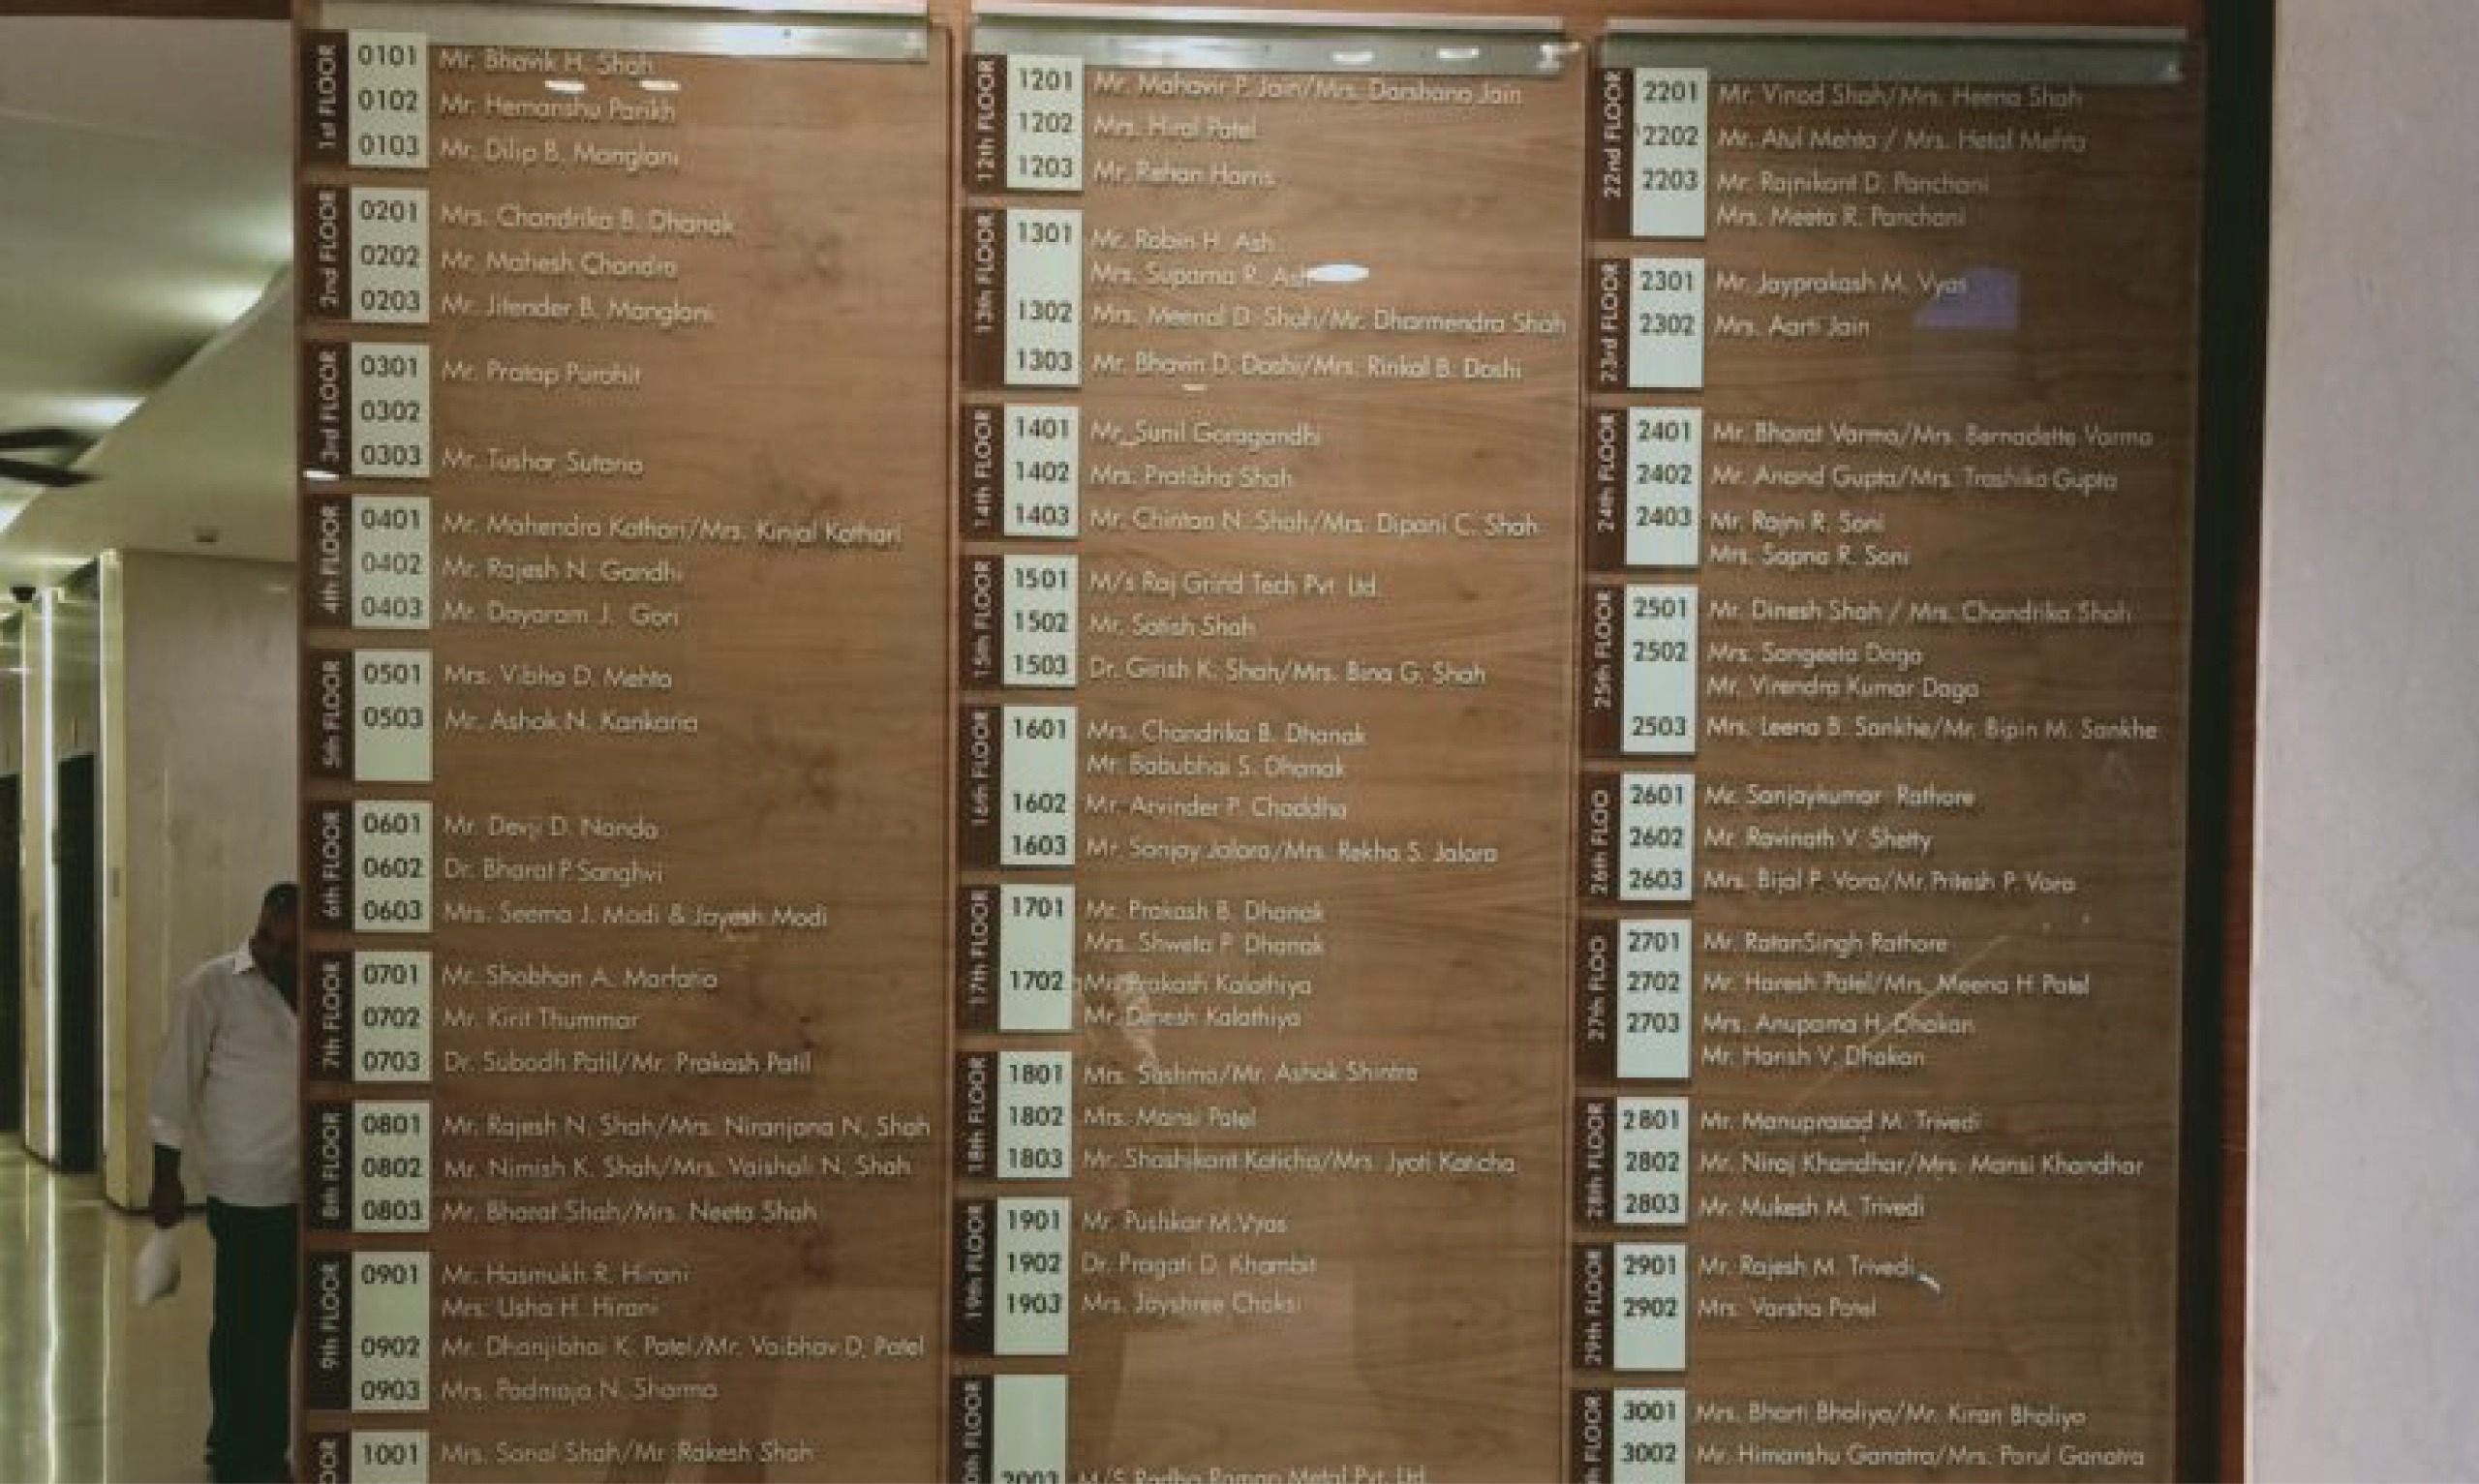 1st FLOOR
0101 Mr. Bhavik H. Shah
0102 Mr. Hemanshu Parikh
0103 Mr. Dilip B. Manglani
2nd FLOOR
0201 Mrs. Chandrika B. Dhanak
0202 Mr. Mahesh Chandra
0203 Mr. Jitender B. Manglani
3rd FLOOR
0301 Mr. Pratap Purohit
0302
0303 Mr. Tushar Sutaria
4th FLOOR
0401 Mr. Mahendra Kothari/Mrs. Kinjal Kothari
0402 Mr. Rajesh N. Gandhi
0403 Mr. Dayaram J. Gori
5th FLOOR
0501 Mrs. Vibha D. Mehta
0503 Mr. Ashok N. Kankaria
6th FLOOR
0601 Mr. Devji D. Nanda
0602 Dr. Bharat P. Sanghvi
0603 Mrs. Seema J. Modi & Jayesh Modi
7th FLOOR
0701 Mr. Shobhan A. Marfatia
0702 Mr. Kirit Thummar
0703 Dr. Subodh Patil/Mr. Prakash Patil
8th FLOOR
0801 Mr. Rajesh N. Shah/Mrs. Niranjana N. Shah
0802 Mr. Nimish K. Shah/Mrs. Vaishali N. Shah
0803 Mr. Bharat Shah/Mrs. Neeta Shah
9th FLOOR
0901 Mr. Hasmukh R. Hirani
Mrs. Usha H. Hirani
0902 Mr. Dhanjibhai K. Patel/Mr. Vaibhav D. Patel
0903 Mrs. Padmaja N. Sharma
1001 Mrs. Sonal Shah/Mr. Rakesh Shah
12th FLOOR
1201 Mr. Mahavir P. Jain/Mrs. Darshana Jain
1202 Mrs. Hiral Patel
1203 Mr. Rehan Harris
13th FLOOR
1301 Mr. Robin H. Ash
Mrs. Suparna R. Ash
1302 Mrs. Meenal D. Shah/Mr. Dharmendra Shah
1303 Mr. Bhavin D. Doshi/Mrs. Rinkal B. Doshi
14th FLOOR
1401 Mr. Sunil Goragandhi
1402 Mrs. Pratibha Shah
1403 Mr. Chintan N. Shah/Mrs. Dipani C. Shah
15th FLOOR
1501 M/s Raj Grind Tech Pvt. Ltd.
1502 Mr. Satish Shah
1503 Dr. Girish K. Shah/Mrs. Bina G. Shah
16th FLOOR
1601 Mrs. Chandrika B. Dhanak
Mr. Babubhai S. Dhanak
1602 Mr. Arvinder P. Chaddha
1603 Mr. Sanjay Jalora/Mrs. Rekha S. Jalora
17th FLOOR
1701 Mr. Prakash B. Dhanak
Mrs. Shweta P. Dhanak
1702 Mr. Prakash Kalathiya
Mr. Dinesh Kalathiya
18th FLOOR
1801 Mrs. Sushma/Mr. Ashok Shintre
1802 Mrs. Mansi Patel
1803 Mr. Shashikant Katicha/Mrs. Jyoti Katicha
19th FLOOR
1901 Mr. Pushkar M.Vyas
1902 Dr. Pragati D. Khambit
1903 Mrs. Jayshree Choksi
2003 M/S Radha Raman Metal Pvt. Ltd.
22nd FLOOR
2201 Mr. Vinod Shah/Mrs. Heena Shah
2202 Mr. Atul Mehta / Mrs. Hetal Mehta
2203 Mr. Rajnikant D. Panchani
Mrs. Meeta R. Panchani
23rd FLOOR
2301 Mr. Jayprakash M. Vyas
2302 Mrs. Aarti Jain
24th FLOOR
2401 Mr. Bharat Varma/Mrs. Bernadette Varma
2402 Mr. Anand Gupta/Mrs. Trashika Gupta
2403 Mr. Rajni R. Soni
Mrs. Sapna R. Soni
25th FLOOR
2501 Mr. Dinesh Shah / Mrs. Chandrika Shah
2502 Mrs. Sangeeta Daga
Mr. Virendra Kumar Daga
2503 Mrs. Leena B. Sankhe/Mr. Bipin M. Sankhe
26th FLOO
2601 Mr. Sanjaykumar Rathore
2602 Mr. Ravinath V. Shetty
2603 Mrs. Bijal P. Vora/Mr.Pritesh P. Vora
27th FLOO
2701 Mr. RatanSingh Rathore
2702 Mr. Haresh Patel/Mrs. Meena H Patel
2703 Mrs. Anupama H. Dhakan
Mr. Harish V. Dhakan
28th FLOOR
2801 Mr. Manuprasad M. Trivedi
2802 Mr. Niraj Khandhar/Mrs. Mansi Khandhar
2803 Mr. Mukesh M. Trivedi
29th FLOOR
2901 Mr. Rajesh M. Trivedi
2902 Mrs. Varsha Patel
FLOOR
3001 Mrs. Bharti Bhaliya/Mr. Kiran Bhaliya
3002 Mr. Himanshu Ganatra/Mrs. Parul Ganatra